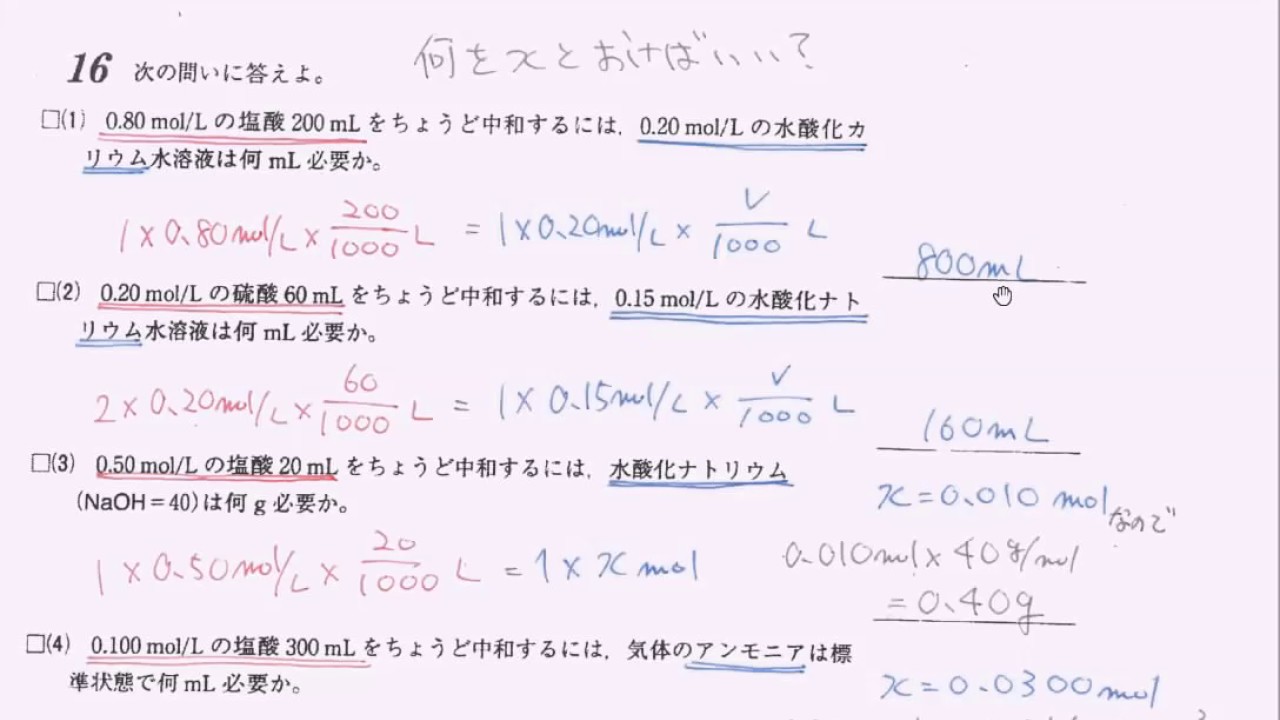 16 次の問いに答えよ。 何をxとおけばいい?
□(1) 0.80 mol/L の塩酸 200 mL をちょうど中和するには, 0.20 mol/L の水酸化カ
リウム水溶液は何 mL 必要か。
1 × 0.80mol/L × 200/1000 L = 1 × 0.20mol/L × V/1000 L
800mL
□(2) 0.20 mol/L の硫酸 60 mL をちょうど中和するには, 0.15 mol/L の水酸化ナト
リウム水溶液は何 mL 必要か。
2 × 0.20mol/L × 60/1000 L = 1 × 0.15mol/L × V/1000 L
160mL
□(3) 0.50 mol/L の塩酸 20 mL をちょうど中和するには, 水酸化ナトリウム
(NaOH=40)は何 g 必要か。
x=0.010 mol なので
1 × 0.50mol/L × 20/1000 L = 1 × x mol
0.010mol × 40g/mol
=0.40g
□(4) 0.100 mol/L の塩酸 300 mL をちょうど中和するには, 気体のアンモニアは標
準状態で何 mL 必要か。
x=0.0300mol